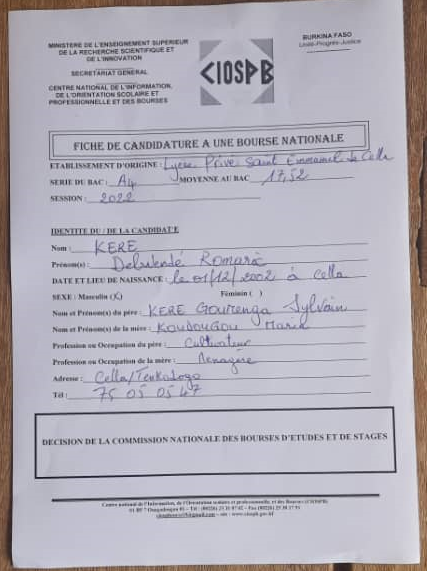 MINISTERE DE L'ENSEIGNEMENT SUPERIEUR
DE LA RECHERCHE SCIENTIFIQUE ET
DE L'INNOVATION
SECRETARIAT GENERAL
CENTRE NATIONAL DE L'INFORMATION,
DE L'ORIENTATION SCOLAIRE ET
PROFESSIONNELLE ET DES BOURSES
CIOSPB
BURKINA FASO
Unité-Progrès-Justice
FICHE DE CANDIDATURE A UNE BOURSE NATIONALE
ETABLISSEMENT D'ORIGINE : Lycée Privé Saint Emmanuel de Cella
SERIE DU BAC : A4 MOYENNE AU BAC 17,52
SESSION : 2022
IDENTITE DU / DE LA CANDIDAT/E
Nom : KERE
Prénom(s) : Romaric
DATE ET LIEU DE NAISSANCE : le 01/12/2002 à Cella
SEXE : Masculin (X) Féminin ( )
Nom et Prénom(s) du père : KERE Sylvain
Nom et Prénom(s) de la mère : KOUDOUGOU Maria
Profession ou Occupation du père : Cultivateur
Profession ou Occupation de la mère : Menagère
Adresse : Cella/Tenkodogo
Tél : 75 05 05 47
DECISION DE LA COMMISSION NATIONALE DES BOURSES D'ETUDES ET DE STAGES
Centre national de l'Information, de l'Orientation scolaire et professionnelle, et des Bourses (CIOSPB)